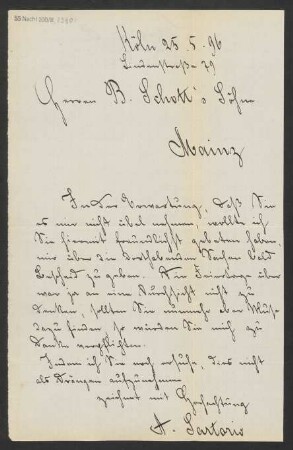 Köln 25. 5. 96
Lindenstraße 79
Herren B. Schott's Söhne
Mainz
In der Erwartung, daß Sie
es mir nicht übel nehmen, wollte ich
Sie hiermit freundlichst gebeten haben,
mir über die dort habenden Sachen bald
Bescheid zu geben. Die Feiertage über
war ja an eine Durchsicht nicht zu
denken, sollten Sie nunmehr aber Muße
dazu finden, so würden Sie mich zu
Dank verpflichten.
Indem ich Sie noch ersuche, dies nicht
als Drängen aufzunehmen
zeichnet mit Hochachtung
A. Sartorio